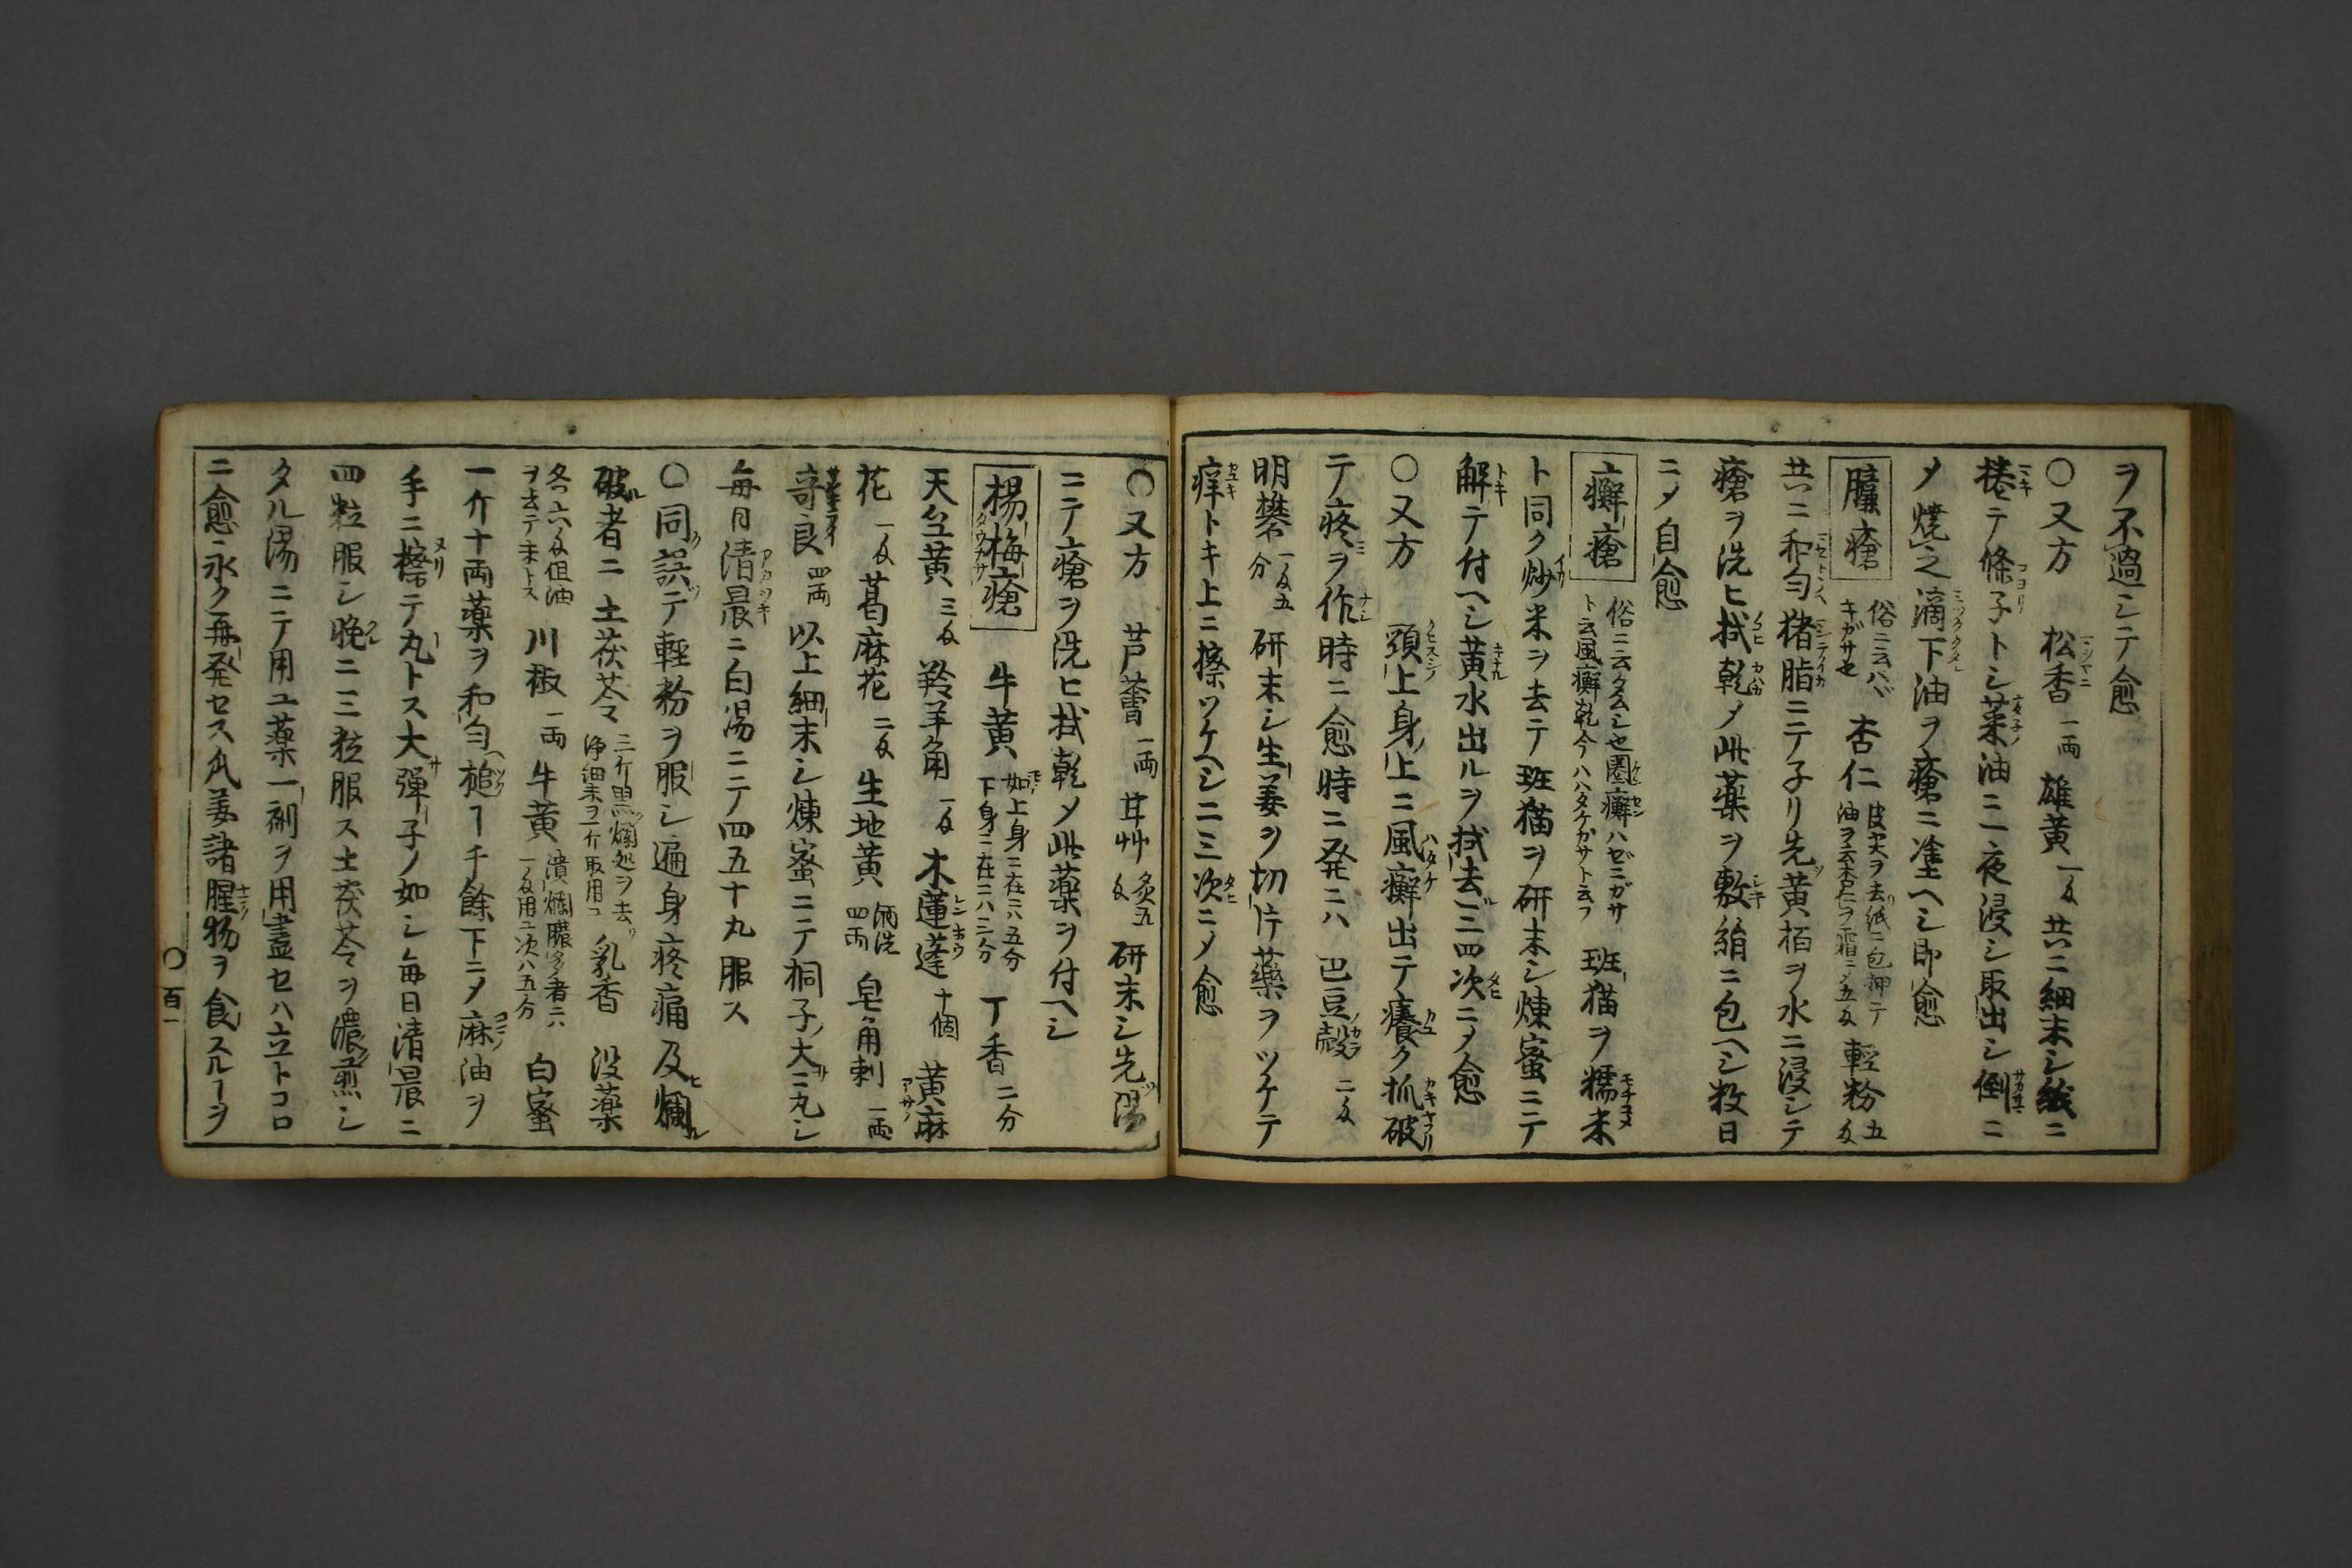 ヲ不過シテ愈
〇又方 松香一両 雄黄一匁 共ニ細末シ紙ニ
捲テ條子トシ菜油ニ一夜浸シ取出シ倒ニ
〆燒之滴下油ヲ瘡ニ塗ヘシ即愈
臁瘡 俗ニ云ハヾキガサ也 杏仁 皮尖ヲ去紙ニ包押テ油ヲ去 軽粉五匁
共ニ和匀猪脂ニテ子リ先黄栢ヲ水ニ浸シテ
瘡ヲ洗ヒ拭乾〆此薬ヲ敷絹ニ包ヘシ数日
ニ〆自愈
癬瘡 俗ニ云タムシ也圏癬ハゼニガサト云風癬乾今ハハタケガサト云フ 班猫ヲ糯米
ト同ク炒米ヲ去テ班猫ヲ研末シ煉蜜ニテ
解テ付ヘシ黄水出ルヲ拭去三四次ニ〆愈
〇又方 頭上身上ニ風癬出テ癢ク抓破
テ疼ヲ作時ニ愈時ニ発ニハ 巴豆殻二匁
明礬一匁五分 研末シ生姜ヲ切片薬ヲツケテ
痒トキ上ニ擦ツケヘシ二三次ニ〆愈
〇又方 芦薈一両 甘艸炙五匁 研末シ先湯
ニテ瘡ヲ洗ヒ拭乾〆此薬ヲ付ヘシ
楊梅瘡 牛黄 如上身ニ在ニハ五分下身ニ在ニハ三分 丁香二分
天竺黄三匁 羚羊角一匁 木蓮蓬十個 黄麻
花一匁 葛麻花二匁 生地黄酒洗四両 皂角刺一両
奇良四両 以上細末シ煉蜜ニテ桐子ノ大ニ丸シ
毎日清晨ニ白湯ニテ四五十丸服ス
〇同誤テ軽粉ヲ服シ遍身疼痛及爛
破者ニ 土茯苓 三斤黒爛処ヲ去浄細末ヲ一斤取用ユ 乳香 没薬
各六匁但油ヲ去テ末トス 川椒一両 牛黄 潰爛膿多者ニハ一匁用ユ次ハ五分 白蜜
一斤十両薬ヲ和匀槌ヿ千餘下ニ〆麻油ヲ
手ニ擦テ丸トス大彈子ノ如シ毎日清晨ニ
四粒服シ晩ニ三粒服ス土茯苓ヲ濃煎シ
タル湯ニテ用ユ薬一剤ヲ用盡セハ立トコロ
ニ愈永ク再発セス瓜姜諸腥物ヲ食スルヿヲ
〇百一